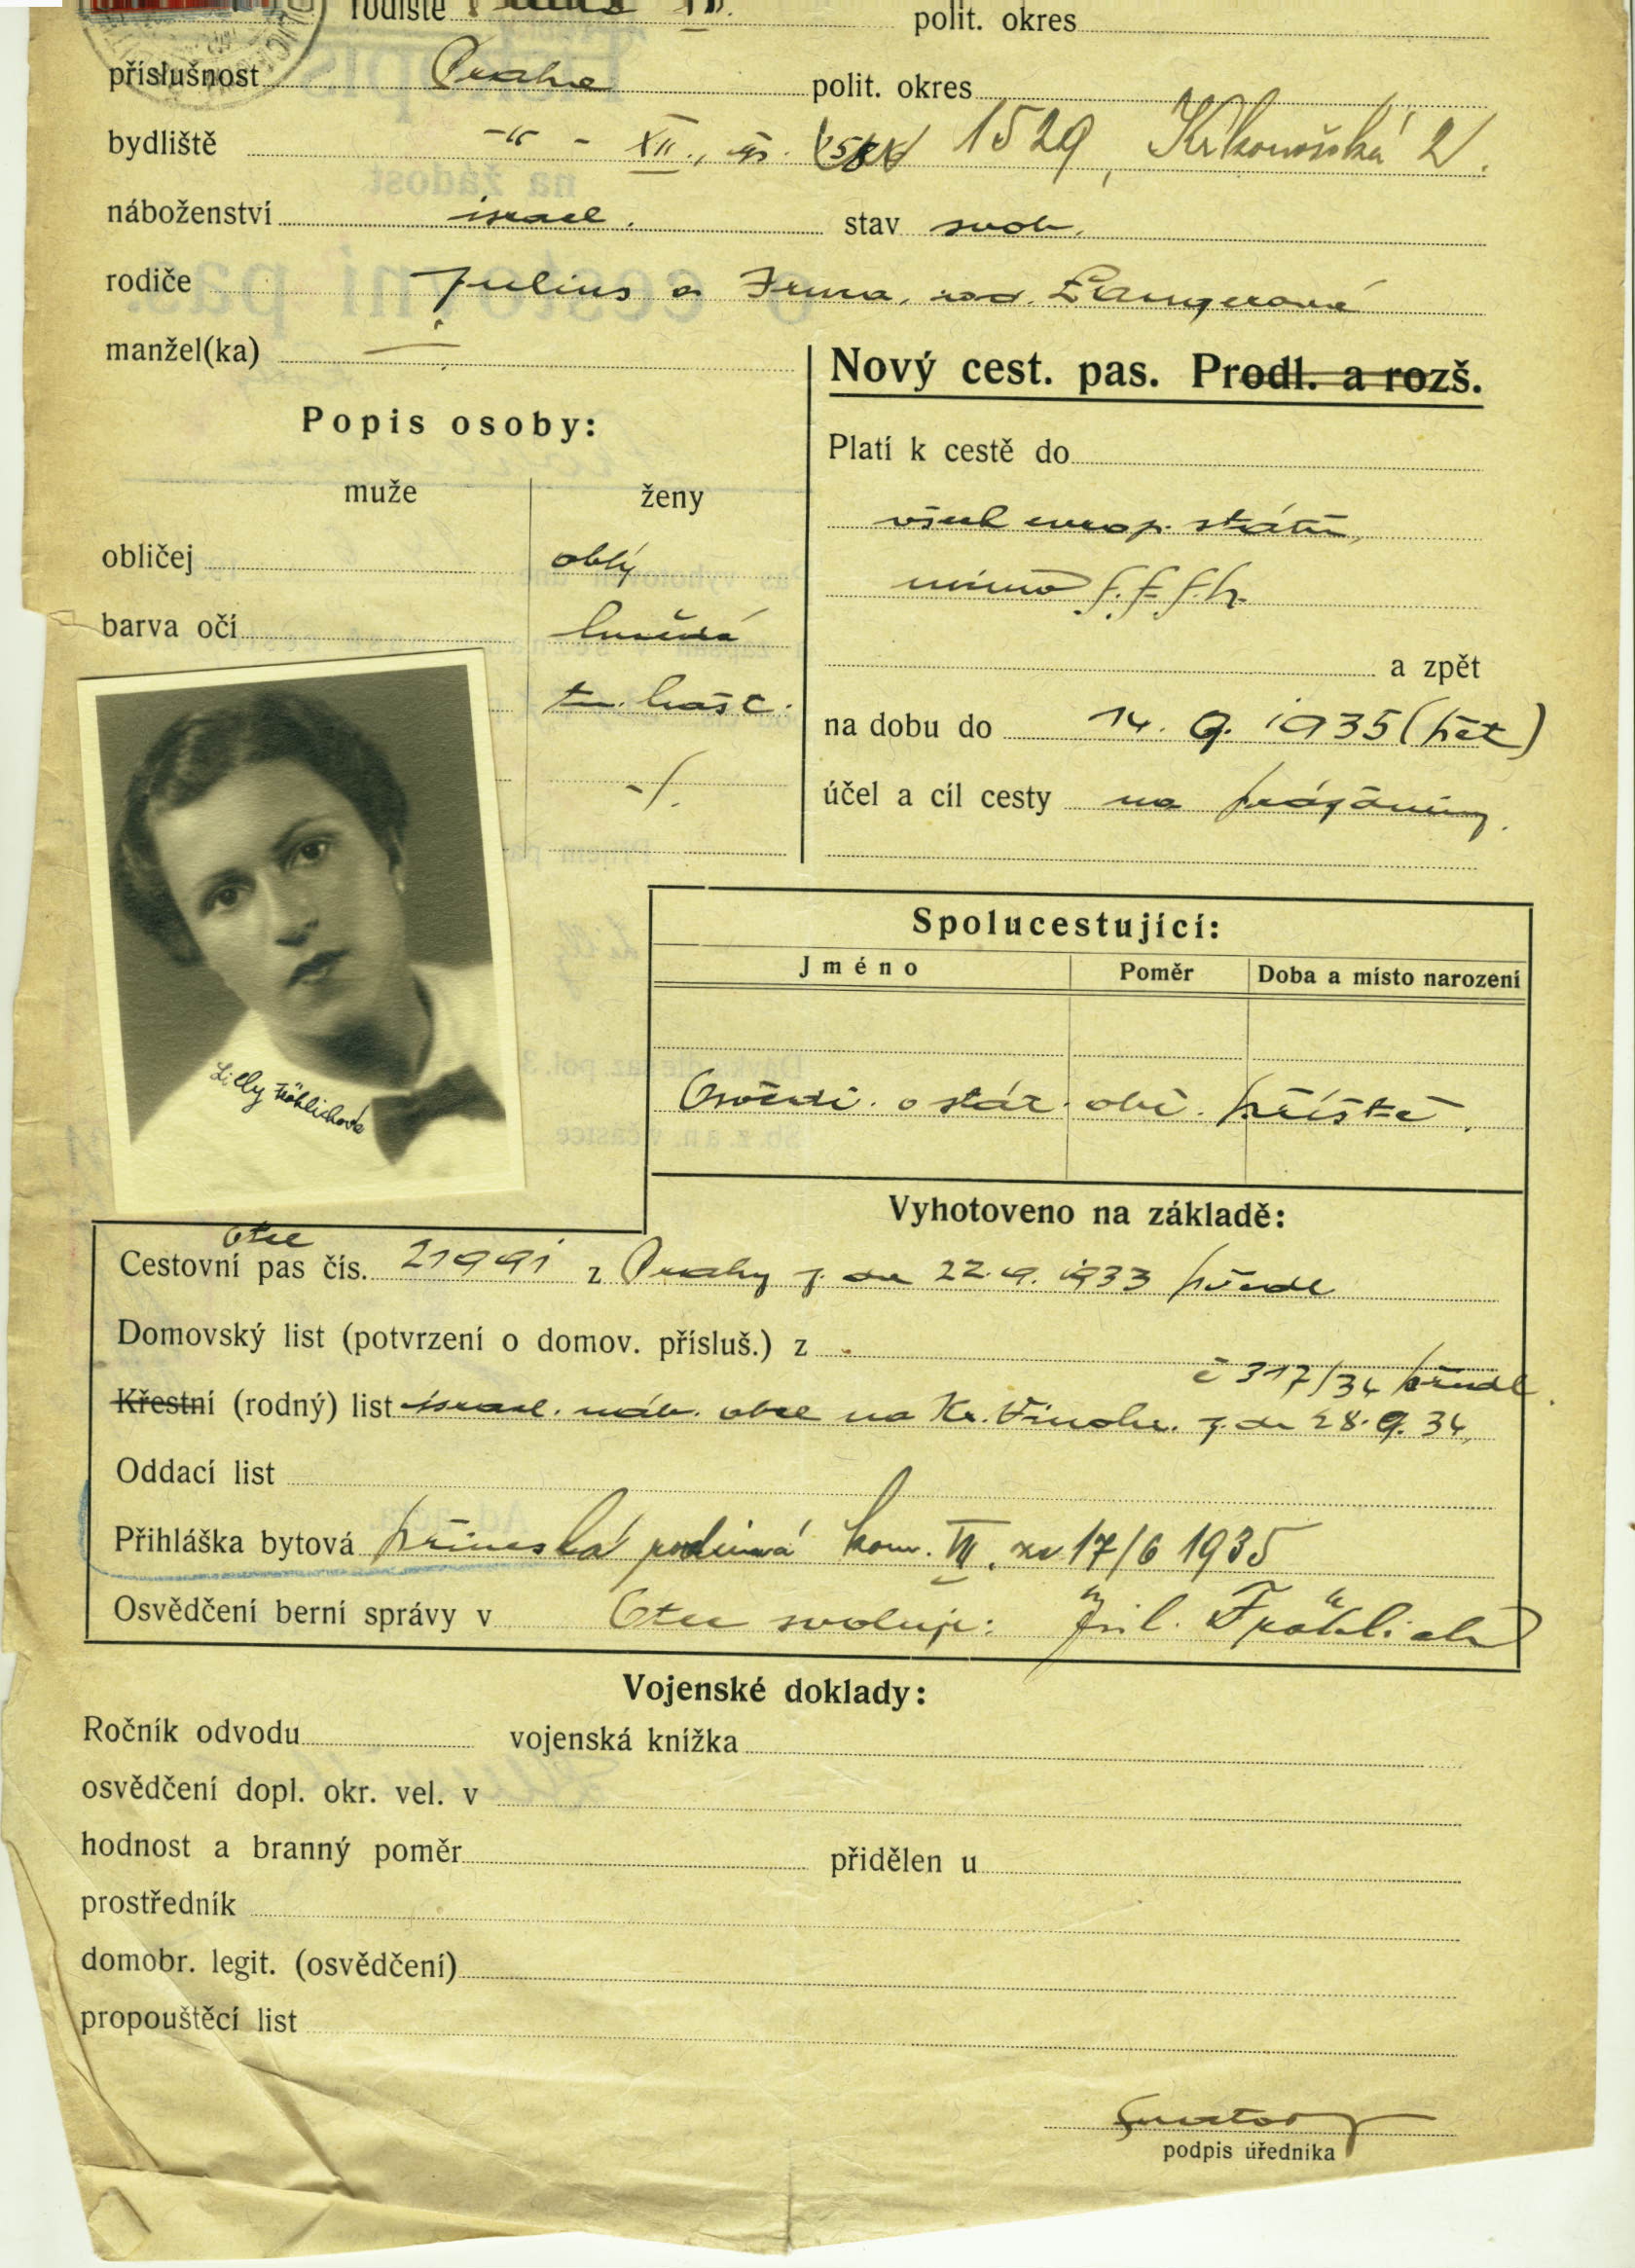 rodiště Praha XII. polit. okres
příslušnost Praha polit. okres
bydliště -"- - XII., čp. 1529, Krkonošská 2
náboženství israel. stav svob.
rodiče Julius a Irma, roz. Langerová
manžel(ka)
Nový cest. pas. Prodl. a rozš.
Popis osoby:
muže ženy
Platí k cestě do
všech evrop. států,
mimo
a zpět
obličej oblý
barva očí hnědá
tm. kašt.
-/.
na dobu do 14. 9. 1935 (pět)
účel a cíl cesty na prázdniny.
Lilly Fröhlichová
Spolucestující:
Jméno Poměr Doba a místo narození
Osvědč. o stát. obč. příště.
Vyhotoveno na základě:
otce
Cestovní pas čís. 21991 z Prahy z. de 22.9.1933 předl
Domovský list (potvrzení o domov. přísluš.) z
č 317/34 předl.
Křestní (rodný) list israel. náb. obce na Kr. Vinohr. z. de 28.9.34,
Oddací list
Přihláška bytová přineská rodinná kom. XII. ze 17/6 1935
Osvědčení berní správy v Otec svoluje: Jul. Fröhlich
Vojenské doklady:
Ročník odvodu vojenská knížka
osvědčení dopl. okr. vel. v
hodnost a branný poměr přidělen u
prostředník
domobr. legit. (osvědčení)
propouštěcí list
podpis úředníka